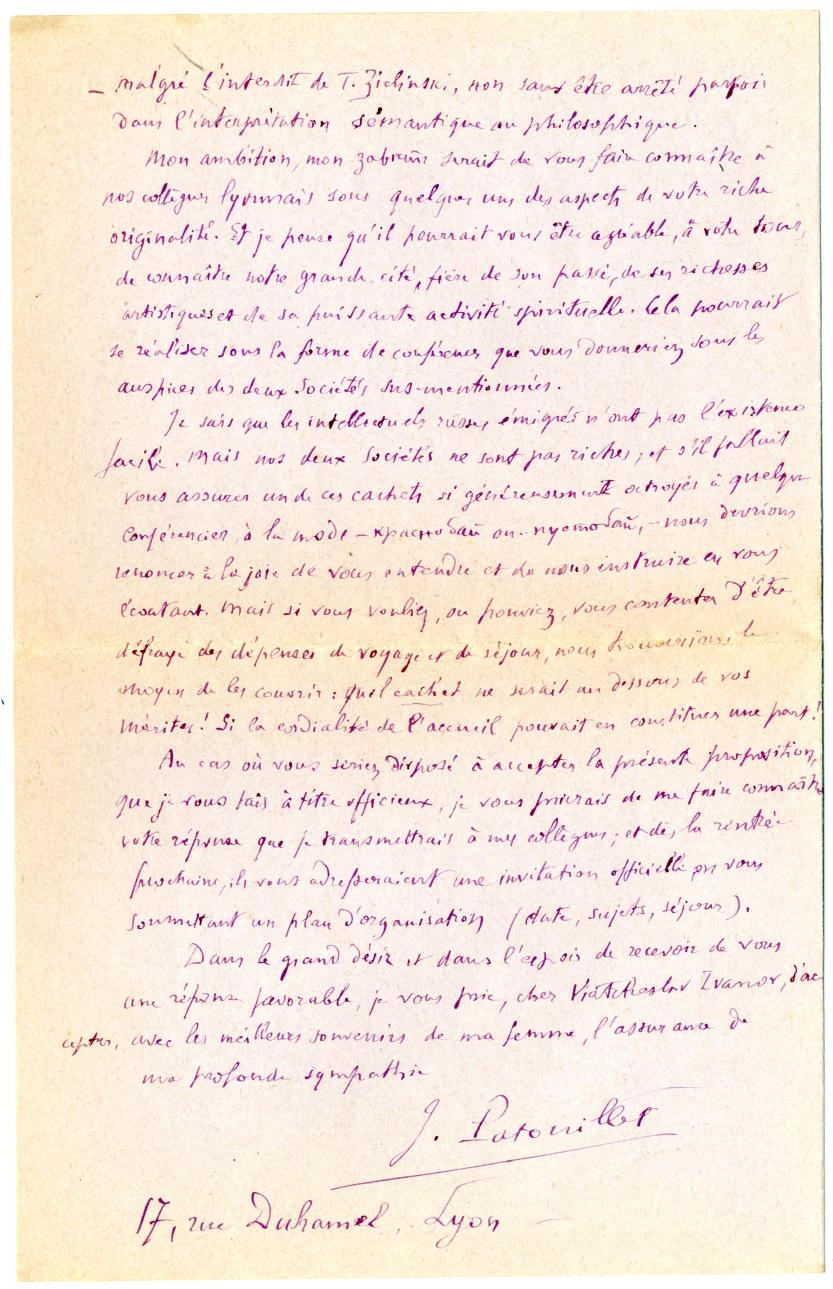 – malgré l'interdit de T. Zielinski, non sans être arrêté parfois
dans l'interprétation sémantique ou philosophique.
Mon ambition, mon serait de vous faire connaître à
nos collègues lyonnais sous quelques uns des aspects de votre riche
originalité. Et je pense qu'il pourrait vous être agréable, à votre tour,
de connaître notre grande cité, fière de son passé, de ses richesses
artistiques et de sa puissante activité spirituelle. Cela pourrait
se réaliser sous la forme de conférences que vous donneriez sous les
auspices des deux Sociétés sus-mentionnées.
Je sais que les intellectuels russes émigrés n'ont pas l'existence
facile. Mais nos deux Sociétés ne sont pas riches; et s'il fallait
vous assurer un de ces cachets si généreusement octroyés à quelque
conférencier à la mode – краснобай ou пустобай, – nous devrions
renoncer à la joie de vous entendre et de nous instruire en vous
écoutant. Mais si vous vouliez, ou pouviez, vous contenter d'être
défrayé des dépenses de voyage et de séjour, nous trouverions le
moyen de les couvrir: quel cachet ne serait au dessous de vos
mérites! Si la cordialité de l'accueil pouvait en constituer une part!
Au cas où vous seriez disposé à accepter la présente proposition,
que je vous fais à titre officieux, je vous prierais de me faire connaître
votre réponse que je transmettrais à mes collègues; et dès la rentrée
prochaine, ils vous adresseraient une invitation officielle en vous
soumettant un plan d'organisation (date, sujets, séjour).
Dans le grand désir et dans l'espoir de recevoir de vous
une réponse favorable, je vous prie, cher Viatcheslav Ivanov, d'ac
cepter, avec les meilleurs souvenirs de ma femme, l'assurance de
ma profonde sympathie
J. Patouillet
17, rue Duhamel, Lyon –